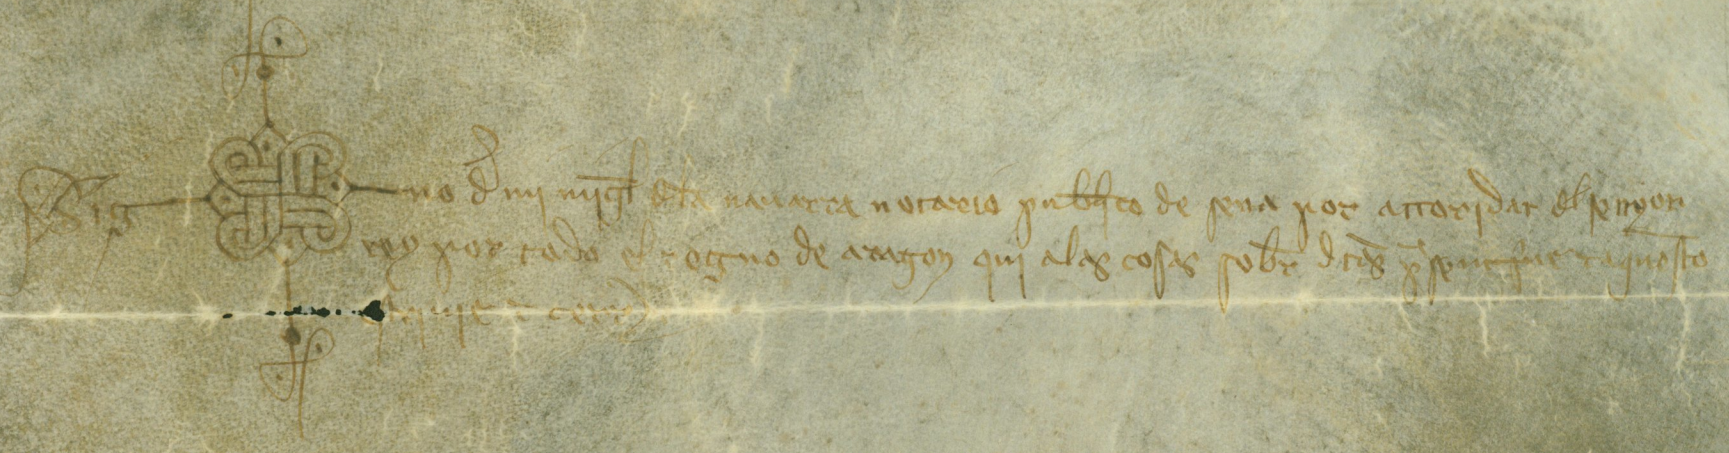 Sig no d mi migl dela navarra notario publico de sena por actoridat del senyor
rey por todo el regno de aragon qui alas cosas sobr dtas present fue requesto